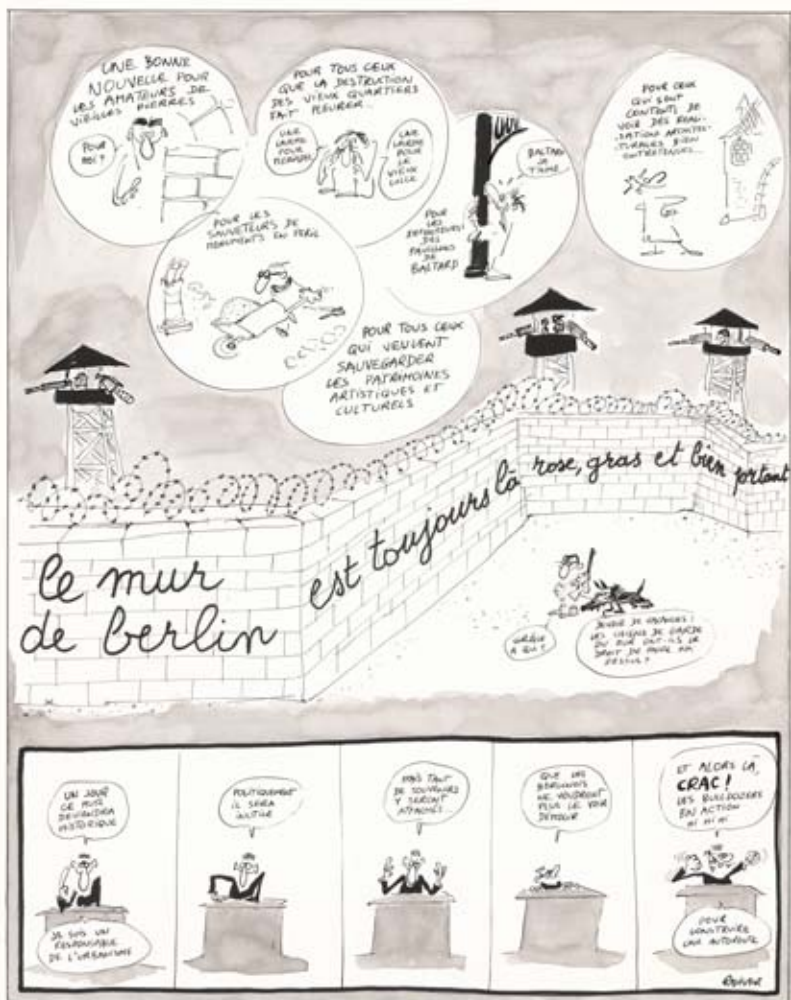 UNE BONNE
NOUVELLE POUR
LES AMATEURS DE
VIEILLES PIERRES
POUR
MOI?
POUR TOUS CEUX
QUE LA DESTRUCTION
DES VIEUX QUARTIERS
FAIT PLEURER...
UNE
LARME
POUR
UNE
LARME
POUR
LE
VIEUX
POUR LES
SAUVETEURS DE
MONUMENTS EN PERIL
POUR
LES
DES
PAVILLONS
DE
BALTARD
BALTARD
JE
T'AIME
POUR CEUX
QUI SONT
CONTENTS DE
VOIR DES REALI-
SATIONS ARCHITEC-
TURALES BIEN
ENTRETENUES...
POUR TOUS CEUX
QUI VEULENT
SAUVEGARDER
LES PATRIMOINES
ARTISTIQUES ET
CULTURELS
le mur
de berlin
est toujours là
rose, gras et bien portant
GRÂCE
A QUI?
DEVOIR DE VACANCES:
LES CHIENS DE GARDE
DU MUR ONT-ILS LE
DROIT DE FAIRE
DESSUS?
UN JOUR
CE MUR
DEVIENDRA
HISTORIQUE
JE SUIS UN
RESPONSABLE
DE L'URBANISME
POLITIQUEMENT
IL SERA
INUTILE
MAIS TANT
DE SOUVENIRS
Y SERONT
ATTACHÉS...
QUE LES
BERLINOIS
NE VOUDRONT
PLUS LE VOIR
DEMOLIR
ET ALORS LÀ,
CRAC!
LES BULLDOZERS
EN ACTION
HI HI HI
POUR
CONSTRUIRE
UNE AUTOROUTE
REISER